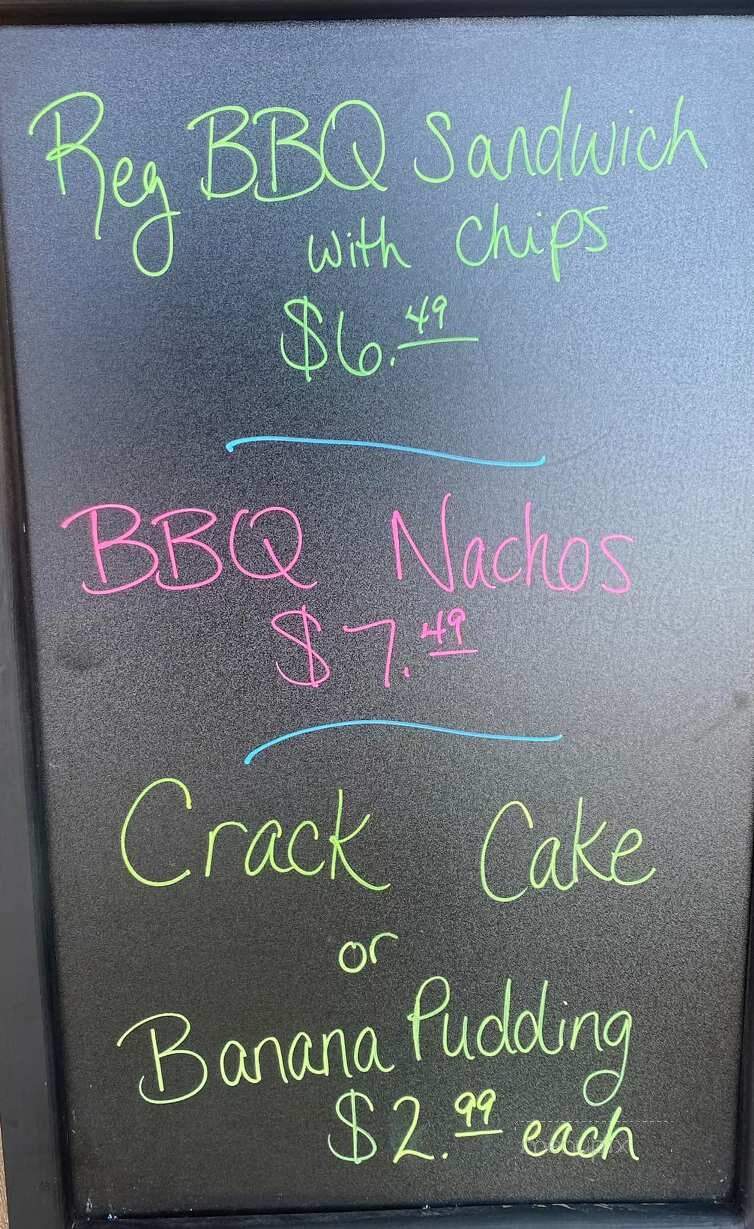 Reg BBQ Sandwich
with chips
$6.49
BBQ Nachos
$7.49
Crack Cake
or
Banana Pudding
$2.99 each